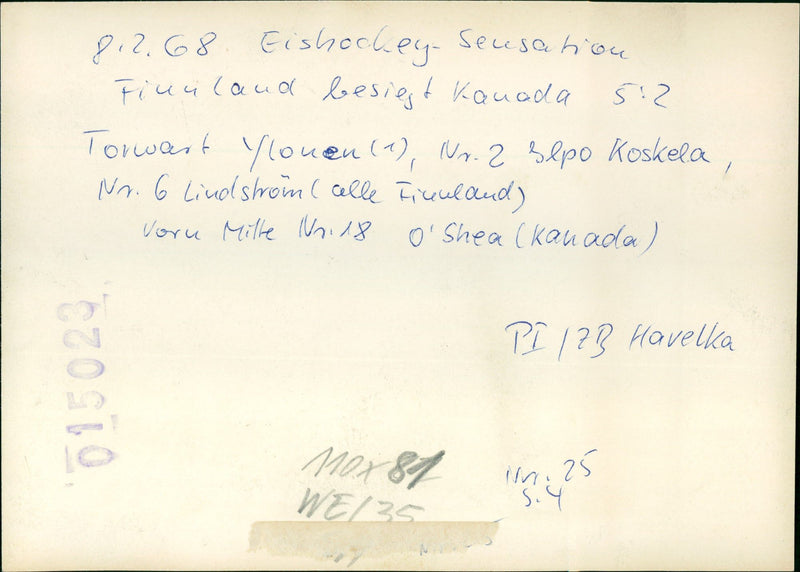 8.2.68 Eishockey-Sensation
Finnland besiegt Kanada 5:2
Torwart Ylonen (1), Nr. 2 Ilpo Koskela,
Nr. 6 Lindström (alle Finnland)
Vorn Mitte Nr. 18 O'Shea (Kanada)
PI/ZB Havelka
015023
110x81
WE/35
Nr. 25
S. 4